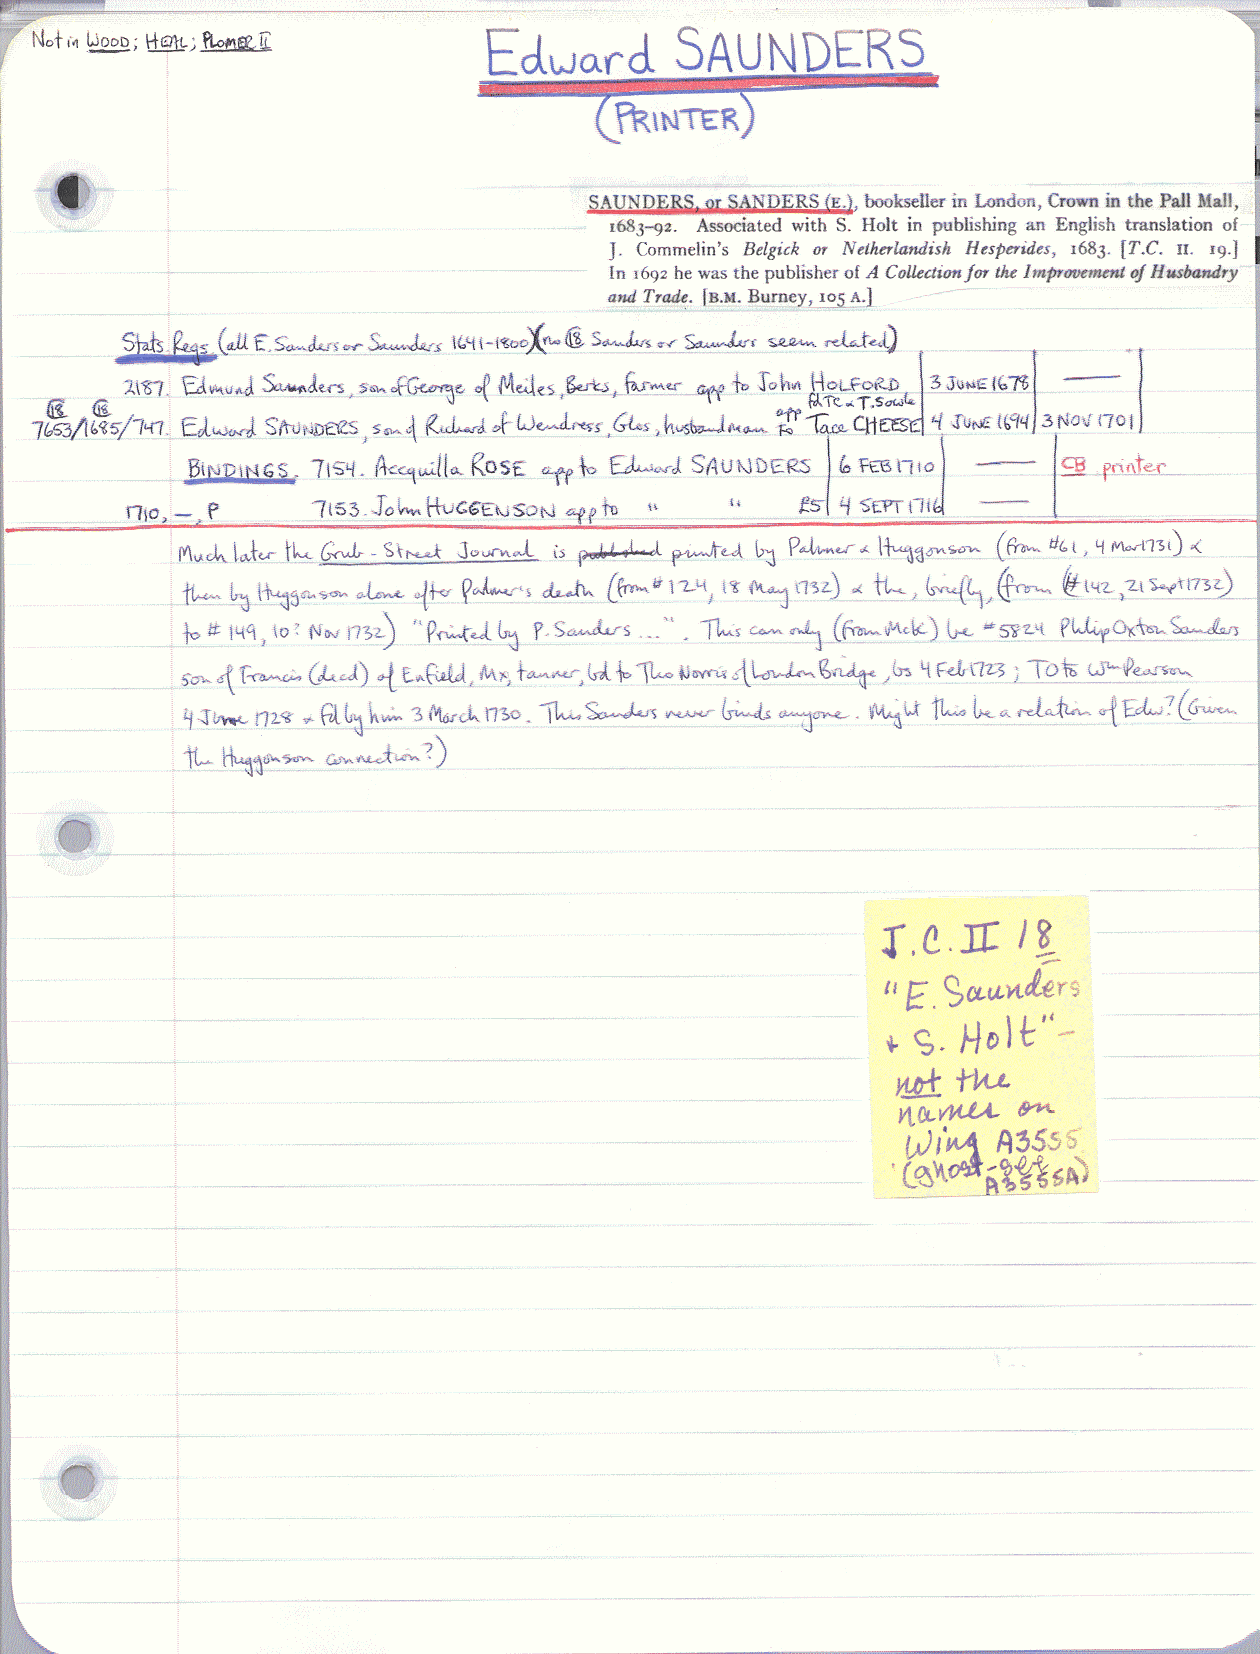 Not in WOOD; HEAL; PLOMER II
Edward SAUNDERS
(PRINTER)
SAUNDERS, or SANDERS (E.), bookseller in London, Crown in the Pall Mall,
1683–92. Associated with S. Holt in publishing an English translation of
J. Commelin's Belgick or Netherlandish Hesperides, 1683. [T.C. II. 19.]
In 1692 he was the publisher of A Collection for the Improvement of Husbandry
and Trade. [B.M. Burney, 105 A.]
Stats Regs (all E. Sanders or Saunders 1641-1800) (no 18 Sanders or Saunders seem related)
2187. Edmund Saunders, son of George of Meiles, Berks, farmer app to John HOLFORD 3 JUNE 1678 —
fd TC & T. Sowle
18 18
7653/1685/747. Edward SAUNDERS, son of Richard of Wendress, Glos, husbandman app to Tace CHEESE 4 JUNE 1694 3 NOV 1701
BINDINGS. 7154. Accquilla ROSE app to Edward SAUNDERS 6 FEB 1710 — CB printer
1710, —, P 7153. John HUGGENSON app to " " £5 4 SEPT 1716 —
Much later the Grub-Street Journal is published printed by Palmer & Huggonson (from #61, 4 Mar 1731) &
then by Huggonson alone after Palmer's death (from #124, 18 May 1732) & the, briefly, (from (#142, 21 Sept 1732)
to #149, 10? Nov 1732) "Printed by P. Sanders ...". This can only (from McK) be #5824 Philip Oxton Sanders
son of Francis (decd) of Enfield, Mx, tanner, bd to Tho Norris of London Bridge, bs 4 Feb 1723; TO to Wm Pearson
4 June 1728 & fd by him 3 March 1730. This Sanders never binds anyone. Might this be a relation of Edw? (Given
the Huggonson connection?)
T.C. II 18
"E. Saunders
+ S. Holt" –
not the
names on
Wing A3555
(ghost-get
A3555A)